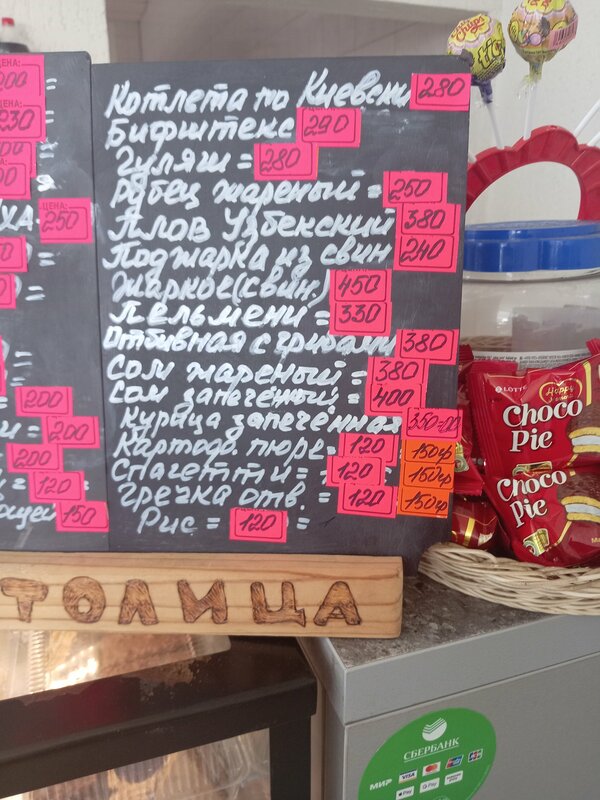 ЦЕНА:
200 =
230
ХА ЦЕНА: 250
=
=
=
200
и = 200
200
= 120
ощей 150
Котлета по Киевски 280
Бифштекс 290
Гуляш = 280
Рубец жареный = 250
Плов Узбекский 380
Поджарка из свин 240
Жаркое(свин) 450
Пельмени = 330
Отбивная с грибами 380
Сом жареный = 380
Сом запечёный = 400
Курица запечённая 350=00
Картоф. пюре = 120 150гр
Спагетти = 120 150гр
Гречка отв. = 120 150гр
Рис = 120 =
ТОЛИЦА
Chupa Chups
LOTTE
Happy
Choco
Pie
Choco
Pie
СБЕРБАНК
МИР VISA
Pay G Pay